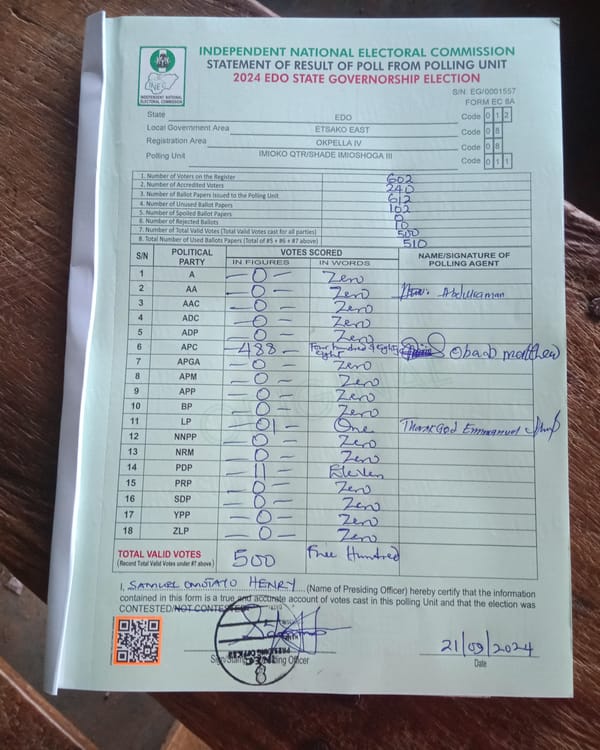 INDEPENDENT NATIONAL ELECTORAL COMMISSION
STATEMENT OF RESULT OF POLL FROM POLLING UNIT
2024 EDO STATE GOVERNORSHIP ELECTION
INEC
INDEPENDENT NATIONAL
ELECTORAL COMMISSION
S/N: EG/0001557
FORM EC 8A
State EDO Code 0 1 2
Local Government Area ETSAKO EAST Code 0 8
Registration Area OKPELLA IV Code 0 8
Polling Unit IMIOKO QTR/SHADE IMIOSHOGA III Code 0 1 1
1. Number of Voters on the Register 602
2. Number of Accredited Voters 240
3. Number of Ballot Papers Issued to the Polling Unit 612
4. Number of Unused Ballot Papers 102
5. Number of Spoiled Ballot Papers 0
6. Number of Rejected Ballots 10
7. Number of Total Valid Votes (Total Valid Votes cast for all parties) 500
8. Total Number of Used Ballots Papers (Total of #5 + #6 + #7 above) 510
S/N POLITICAL PARTY VOTES SCORED NAME/SIGNATURE OF POLLING AGENT
IN FIGURES IN WORDS
1 A - 0 - Zero
2 AA - 0 - Zero Abdulraman
3 AAC - 0 - Zero
4 ADC - 0 - Zero
5 ADP - 0 - Zero
6 APC - 488 - Four hundred & eighty eight
7 APGA - 0 - Zero
8 APM - 0 - Zero
9 APP - 0 - Zero
10 BP - 0 - Zero
11 LP - 01 - One ThankGod Emmanuel
12 NNPP - 0 - Zero
13 NRM - 0 - Zero
14 PDP - 11 - Eleven
15 PRP - 0 - Zero
16 SDP - 0 - Zero
17 YPP - 0 - Zero
18 ZLP - 0 - Zero
TOTAL VALID VOTES 500 Five Hundred
(Record Total Valid Votes under #7 above)
I, SAMUEL OMOTAYO HENRY (Name of Presiding Officer) hereby certify that the information
contained in this form is a true and accurate account of votes cast in this polling Unit and that the election was
CONTESTED/NOT CONTESTED
21/09/2024
Date